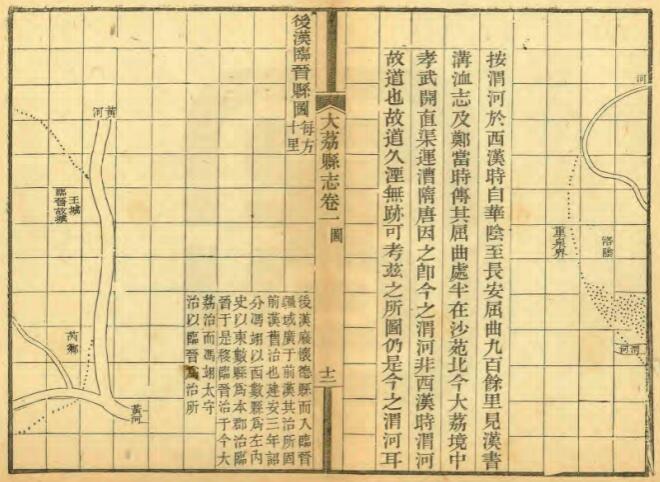 河
洛陰
重泉界
渭河
按渭河於西漢時自華陰至長安屈曲九百餘里見漢書
溝洫志及鄭當時傳其屈曲處半在沙苑北今大荔境中
孝武開直渠運漕隋唐因之即今之渭河非西漢時渭河
故道也故道久湮無跡可考茲之所圖仍是今之渭河耳
大荔縣志卷一
圖
十二
後漢臨晉縣圖
每方
十里
後漢廢懷德縣而入臨晉
疆域廣于前漢其治所因
前漢舊治也建安三年詔
分馮翊以西數縣為左內
史以東數縣為本郡治臨
晉于是移臨晉治于今大
荔治而馮翊太守
治以臨晉為治所
黃河
王城
臨晉故城
芮鄉
黃河